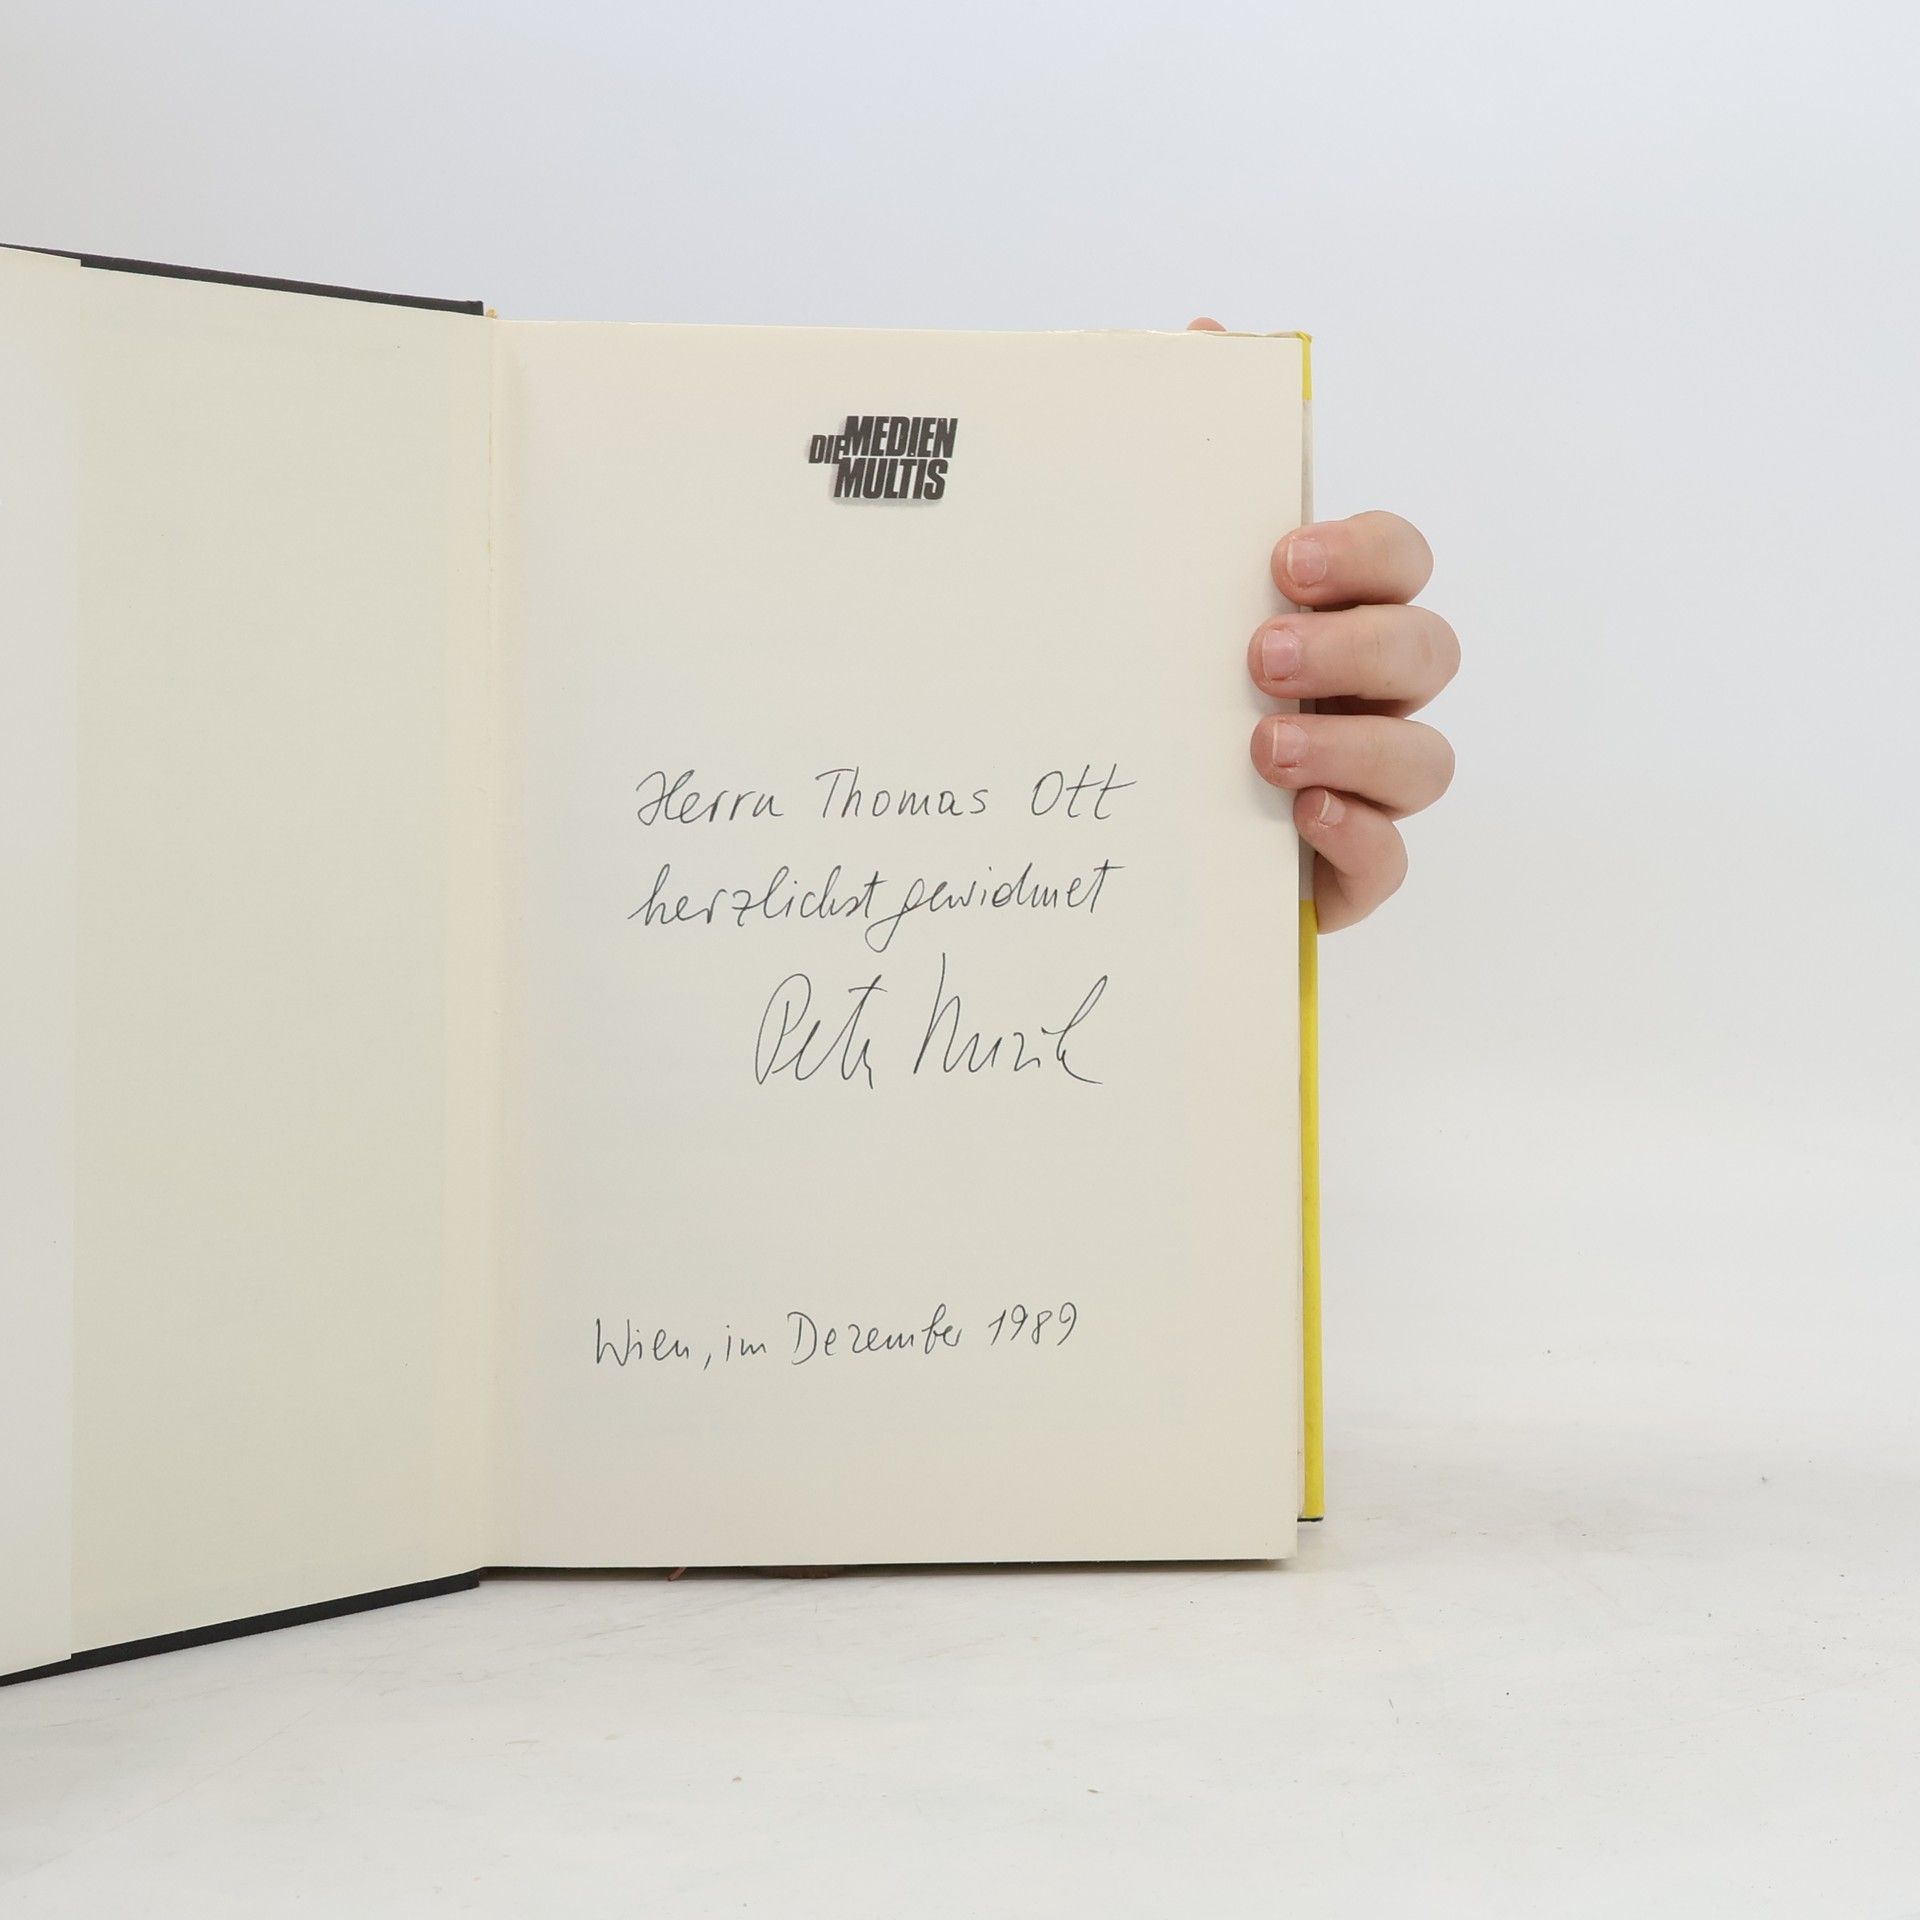 DIE MEDIEN
MULTIS
Herrn Thomas Ott
herzlichst gewidmet
Peter Muzik
Wien, im Dezember 1989